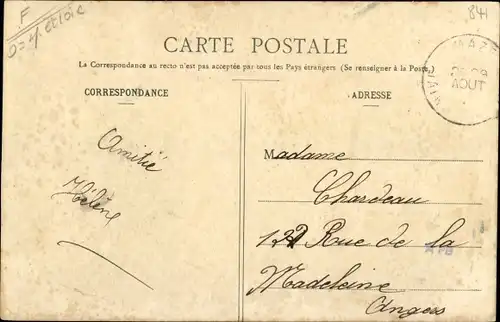 F
841
CARTE POSTALE
La Correspondance au recto n'est pas acceptée par tous les Pays étrangers (Se renseigner à la Poste.)
MAZE
AOUT
CORRESPONDANCE
ADRESSE
Amitié
Hélène
Madame
Chardeau
121 Rue de la
Madeleine
Angers